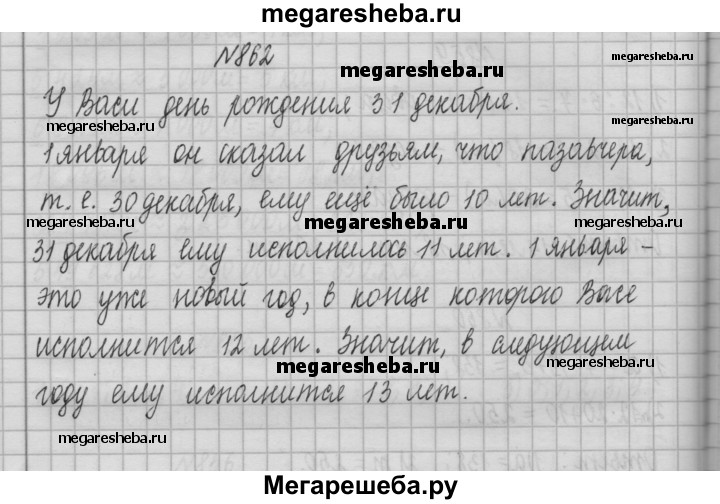 megaresheba.ru
N862
megaresheba.ru
megaresheba.ru
У Васи день рождения 31 декабря.
megaresheba.ru
megaresheba.ru
1 января он сказал друзьям, что пазавчера,
т. е. 30 декабря, ему ещё было 10 лет. Значит,
megaresheba.ru
megaresheba.ru
megaresheba.ru
31 декабря ему исполнилось 11 лет. 1 января –
это уже новый год, в конце которого Васе
исполнится 12 лет. Значит, в следующем
megaresheba.ru
megaresheba.ru
году ему исполнится 13 лет.
megaresheba.ru
megaresheba.ru
Мегарешеба.ру